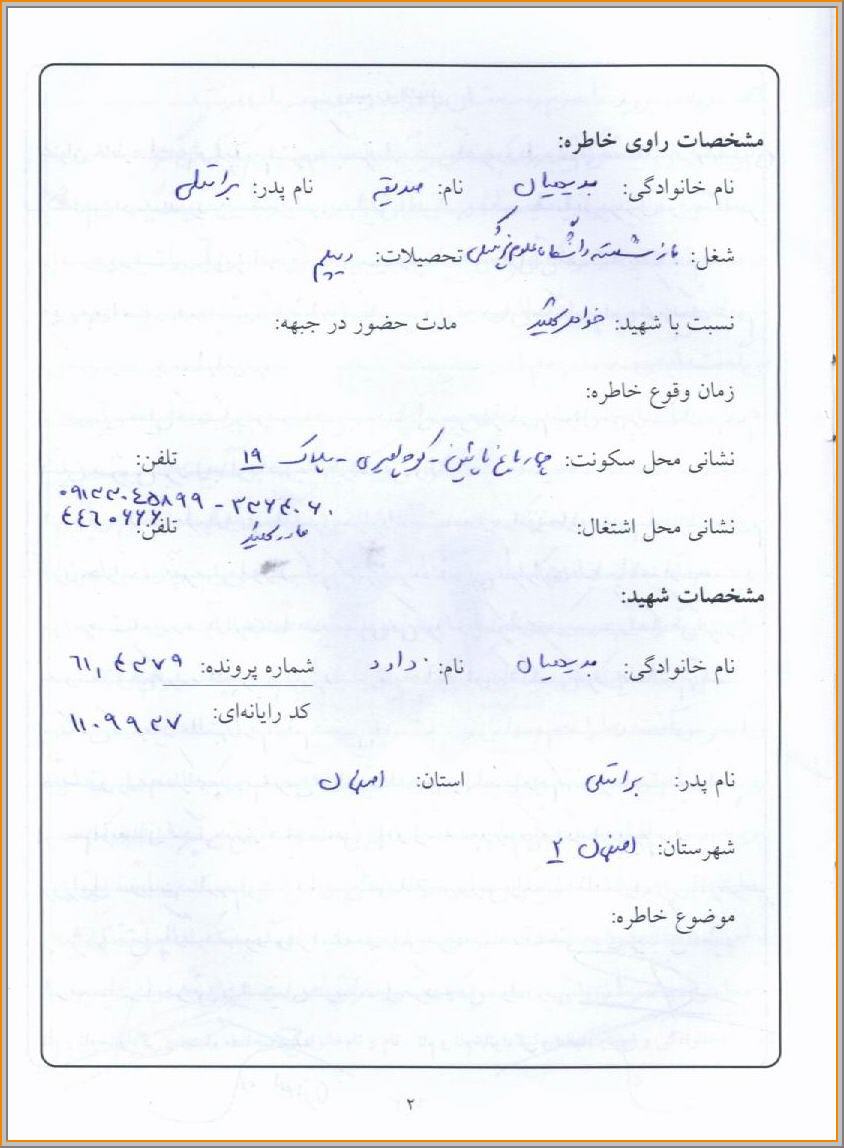 مشخصات راوی خاطره:
نام خانوادگی: مدیحیان نام: صدیقه نام پدر: براتعلی
شغل: بازنشسته دانشگاه علوم پزشکی تحصیلات: دیپلم
نسبت با شهید: خواهر شهید مدت حضور در جبهه:
زمان وقوع خاطره:
نشانی محل سکونت: چهارباغ پائین - کوچه - پلاک ۱۹ تلفن:
نشانی محل اشتغال: مادر شهید تلفن:
مشخصات شهید:
نام خانوادگی: مدیحیان نام: داود شماره پرونده:
کد رایانه‌ای: ۱۱۰۹۹۳۷
نام پدر: براتعلی استان: اصفهان
شهرستان: اصفهان ۲
موضوع خاطره:
۲